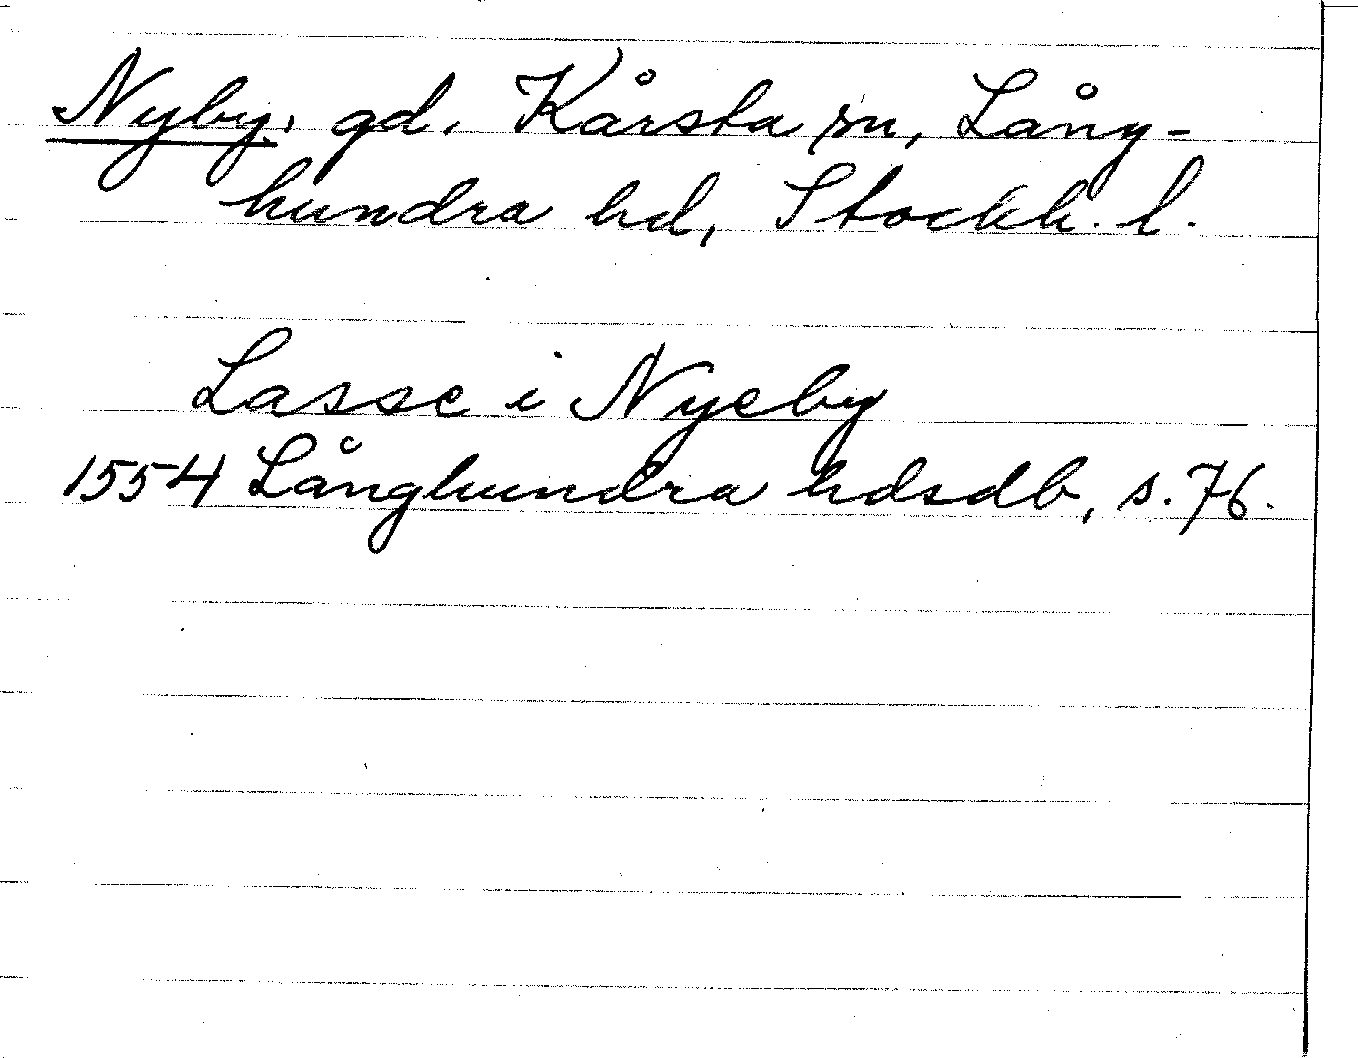 Nyby, gd. Kårsta sn, Lång-
hundra hd, Stockh. l.
Lasse i Nyeby
1554 Långhundra hdsdb, s. 76.